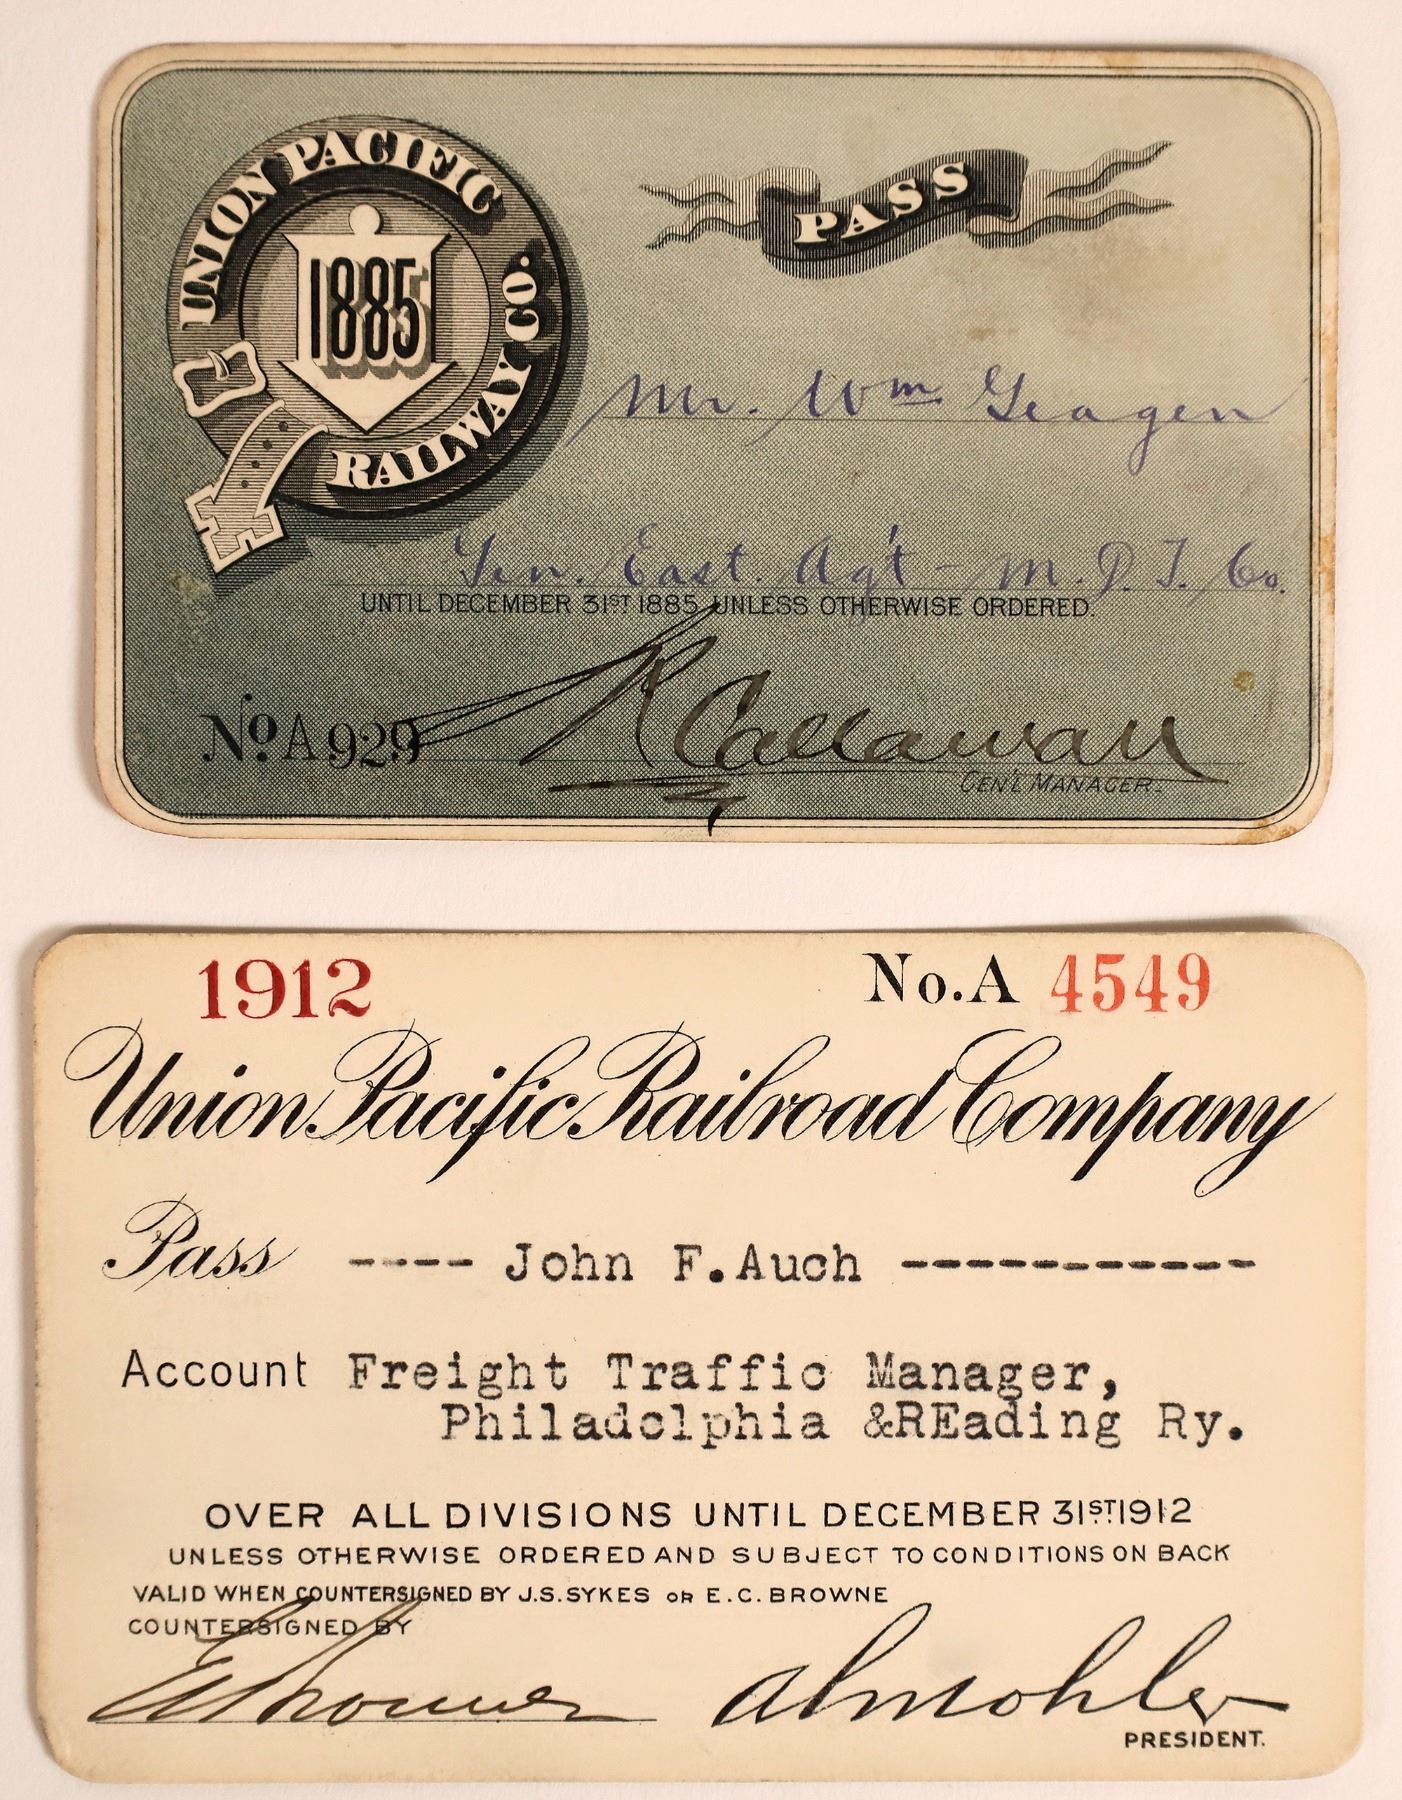 UNION PACIFIC RAILWAY CO.
1885
PASS
Mr. Wm Geagen
Gen. East. Agt - M. D. T. Co.
UNTIL DECEMBER 31ST 1885, UNLESS OTHERWISE ORDERED.
No. A 929
Callaway
GEN'L MANAGER.
1912 No. A 4549
Union Pacific Railroad Company
Pass ---- John F. Auch ------------
Account Freight Traffic Manager,
Philadelphia &REading Ry.
OVER ALL DIVISIONS UNTIL DECEMBER 31ST 1912
UNLESS OTHERWISE ORDERED AND SUBJECT TO CONDITIONS ON BACK
VALID WHEN COUNTERSIGNED BY J.S. SYKES OR E.C. BROWNE
COUNTERSIGNED BY
E C Browne
A L Mohler
PRESIDENT.